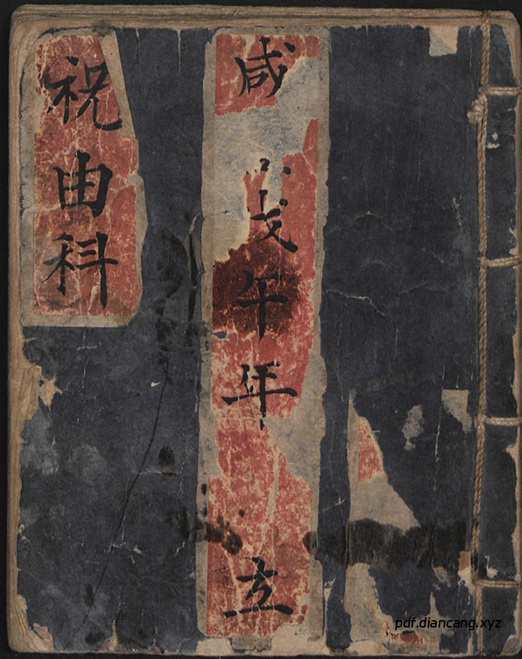 咸戊午年立
祝由科
pdf.diancang.xyz